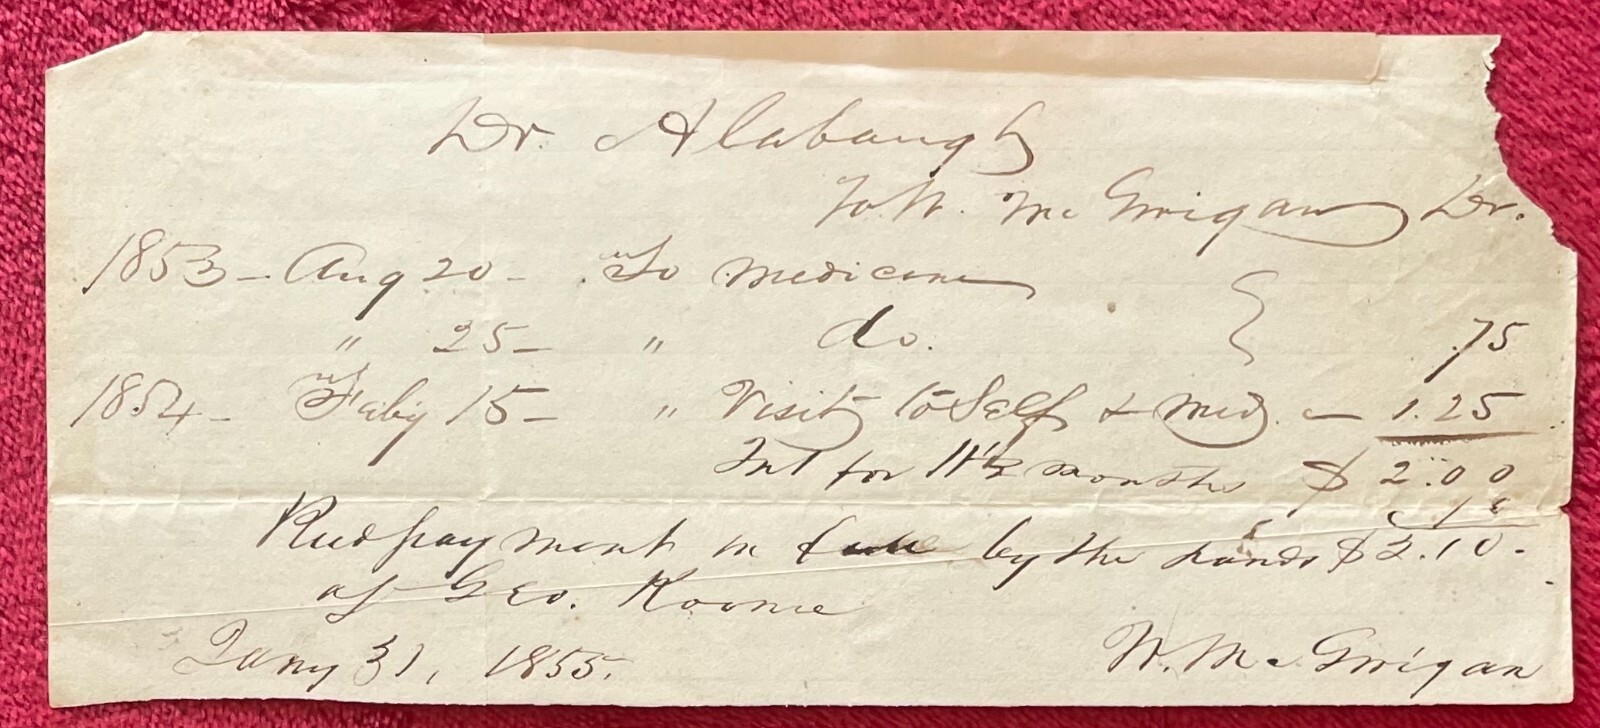 Dr. Alabaugh
To W. McGrigan Dr.
1853 - Aug 20 - To Medicine
" 25 - " do. .75
1854 - Feby 15 - " Visit to Self & Med. - 1.25
Int for 11 1/2 months $ 2.00
.10
Recd payment in full by the hands $2.10.
of Geo. Koonce
Jany 31, 1855.
W. McGrigan